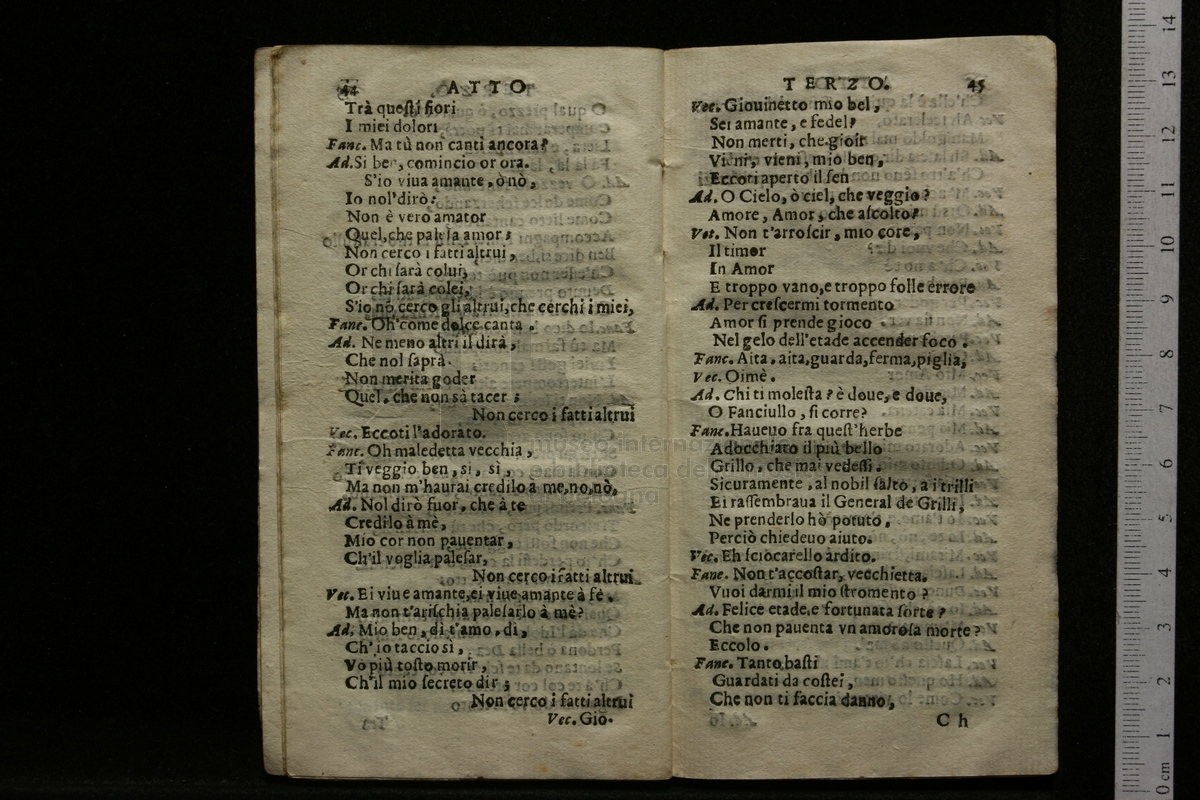 44 ATTO
Trà questi fiori
I miei dolori
Fanc. Ma tù non canti ancora?
Ad. Si ben, comincio or ora.
S'io viua amante, ò nò,
Io nol'dirò:
Non è vero amator
Quel, che palesa amor;
Non cerco i fatti altrui,
Or chi sarà colui,
Or chi sarà colei,
S'io nō cerco gli altrui, che cerchi i miei,
Fanc. Oh'come dolce canta.
Ad. Ne meno altri il dirà,
Che nol saprà.
Non merita goder
Quel, che non sà tacer;
Non cerco i fatti altrui
Vec. Eccoti l'adorato.
Fanc. Oh maledetta vecchia,
Ti veggio ben, si, si,
Ma non m'haurai credilo à me, no, nò,
Ad. Nol dirò fuor, che à te
Credilo à mè,
Mio cor non pauentar,
Ch'il voglia palesar,
Non cerco i fatti altrui
Vec. Ei viue amante, ei viue amante à fè.
Ma non t'arischia palesarlo à mè?
Ad. Mio ben, di t'amo, di,
Ch'io taccio sì,
Vò più tosto morir,
Ch'il mio secreto dir;
Non cerco i fatti altrui
Vec. Gio-
TERZO. 45
Vec. Giouinetto mio bel,
Sei amante, e fedel?
Non merti, che gioir
Vieni, vieni, mio ben,
Eccoti aperto il sen
Ad. O Cielo, ò ciel, che veggio?
Amore, Amor, che ascolto?
Vec. Non t'arroscir, mio core,
Il timor
In Amor
E troppo vano, e troppo folle errore
Ad. Per crescermi tormento
Amor si prende gioco
Nel gelo dell'etade accender foco.
Fanc. Aita, aita, guarda, ferma, piglia,
Vec. Oimè.
Ad. Chi ti molesta? è doue, e doue,
O Fanciullo, si corre?
Fanc. Haueuo fra quest'herbe
Adocchiato il più bello
Grillo, che mai vedessi.
Sicuramente, al nobil salto, a i trilli
Ei rassembraua il General de Grilli,
Ne prenderlo hò potuto,
Perciò chiedeuo aiuto.
Vec. Eh sciocarello ardito.
Fanc. Non t'accostar, vecchietta.
Vuoi darmi il mio stromento?
Ad. Felice etade, e fortunata sorte?
Che non pauenta vn amorosa morte?
Eccolo.
Fanc. Tanto basti
Guardati da costei,
Che non ti faccia danno,
Ch